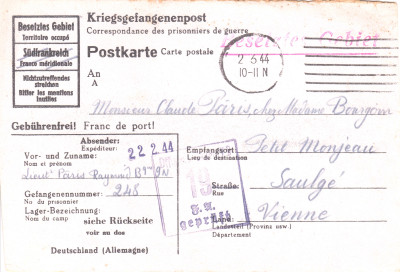 Kriegsgefangenenpost
Correspondance des prisonniers de guerre
Besetztes Gebiet
Territoire occupé
Südfrankreich
France méridionale
Nichtzutreffendes
streichen
Biffer les mentions
inutiles
Postkarte Carte postale
Besetztes Gebiet
2 5 44
10-11 N
An
A
Monsieur Claude Pâris, chez Madame Bourgoin
Gebührenfrei! Franc de port!
Absender:
Expéditeur:
22 2 44
Vor- und Zuname:
Nom et prénom
Lieut Pâris Raymond
Gefangenennummer: 248
No du prisonnier
Lager-Bezeichnung:
Nom du camp
siehe Rückseite
voir au dos
Deutschland (Allemagne)
19
geprüft
Empfangsort: Petit Monjeau
Lieu de destination
Straße: Saulgé
Rue
Vienne
Landesteil (Provinz usw.)
Département